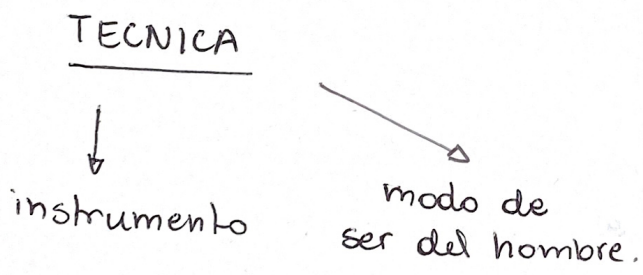 TECNICA
instrumento
modo de
ser del hombre.